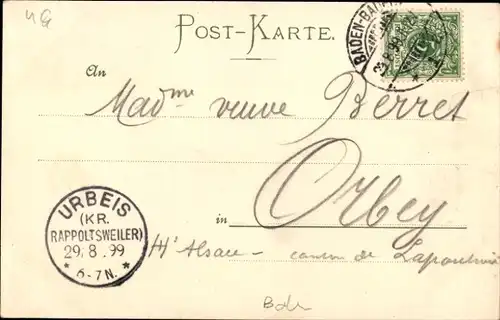 POST-KARTE.
BADEN-BADEN
An
Madme veuve Berret
in Orbey
Hte Alsace - canton de Lapoutroie
URBEIS
(KR.
RAPPOLTSWEILER)
29.8.99
* 6-7N. *
Bdn